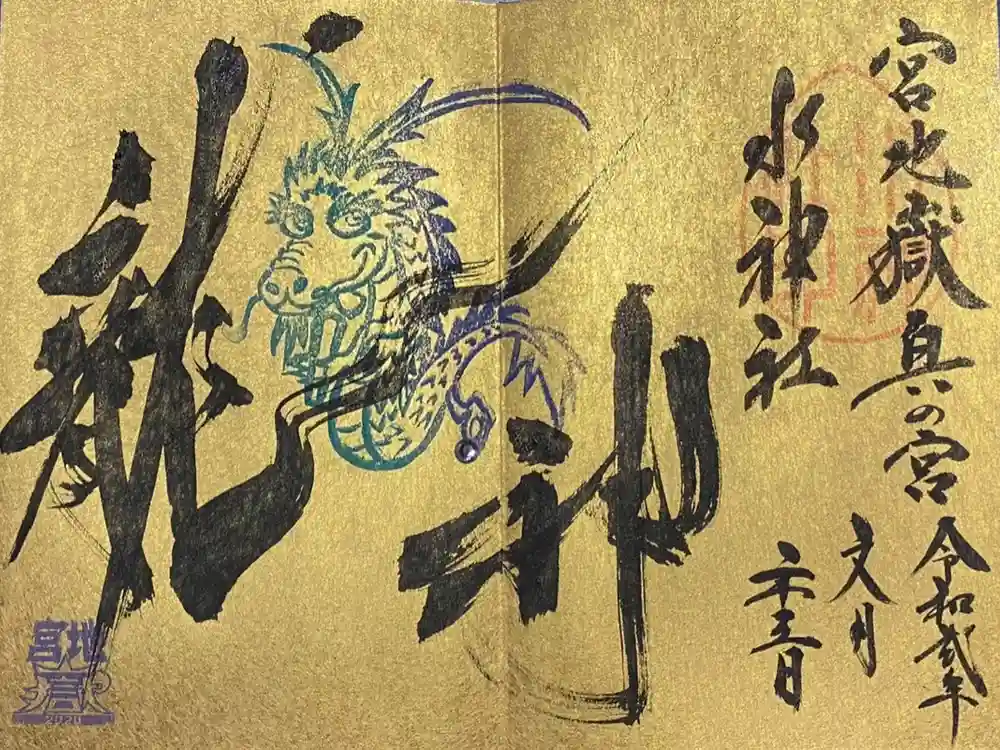 宮地嶽奥の宮
水神社
令和弐年
文月
二十三日
龍神
宮地
嶽
2020